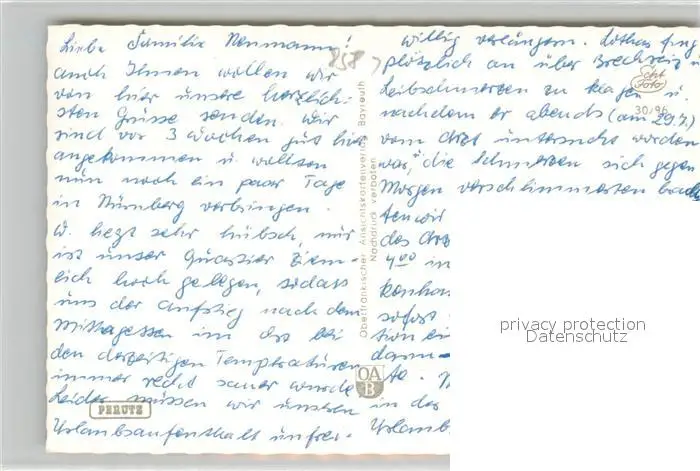 Liebe Familie Neumann!
auch Ihnen wollen wir
von hier unsere herzlich-
sten Grüsse senden. Wir
sind vor 3 Wochen gut hier
angekommen u. wollten
nun noch ein paar Tage
in Nürnberg verbringen.
W. liegt sehr hübsch, nur
ist unser Quartier ziem-
lich hoch gelegen, sodass
uns der Aufstieg nach dem
Mittagessen im Ort bei
den derzeitigen Temperaturen
immer recht sauer wurde
Leider müssen wir unseren
Urlaubsaufenthalt unfrei-
willig verlängern. Lothar fing
plötzlich an über Brechreiz u
Leibschmerzen zu klagen u.
nachdem er abends (am 29.7.)
vom Arzt untersucht worden
war, die Schmerzen sich gegen
Morgen verschlimmerten
ten wir
des
4⁰⁰ in
sofort
tion ei
te.
in des
Urlaub
258
Echt
Foto
30/96
Oberfränkischer Ansichtskartenverlag Bayreuth
Nachdruck verboten
OA
B
PERUTZ
privacy protection
Datenschutz